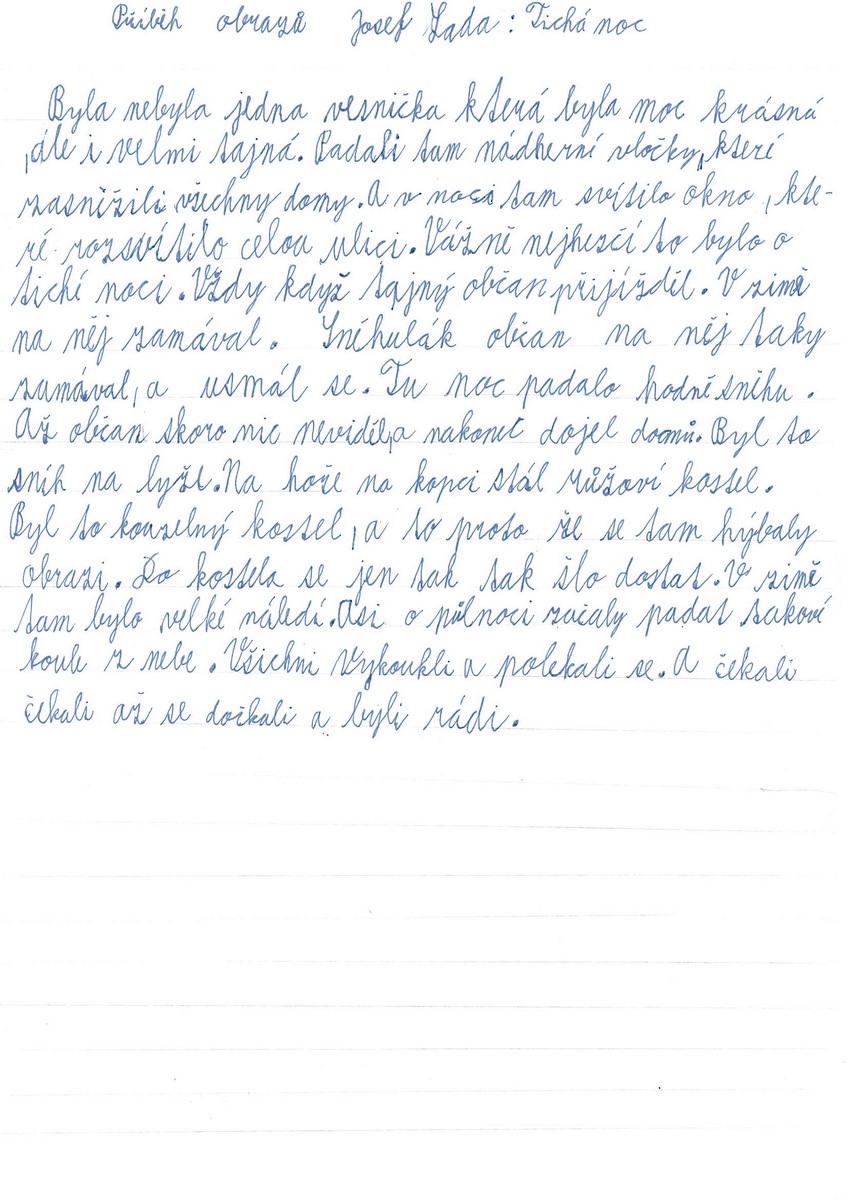 Příběh obrazů Josef Lada: Tichá noc
Byla nebyla jedna vesnička která byla moc krásná
,ale i velmi tajná. Padali tam nádherní vločky, které
zasnížili všechny domy. A v noci tam svítilo okno, kte-
ré rozsvítilo celou ulici. Vážně nejhezčí to bylo o
tiché noci. Vždy když tajný občan přijížděl. V zimě
na něj zamával. Sněhulák občan na něj taky
zamával, a usmál se. Tu noc padalo hodně sněhu.
Až občan skoro nic neviděl, a nakonec dojel domů. Byl to
sníh na lyže. Na hoře na kopci stál růžoví kostel.
Byl to kouzelný kostel, a to proto že se tam hýbaly
obrazi. Do kostela se jen tak tak šlo dostat. V zimě
tam bylo velké náledí. Asi o půlnoci začaly padat takoví
koule z nebe. Všichni vykoukli a polekali se. A čekali
čekali až se dočkali a byli rádi.